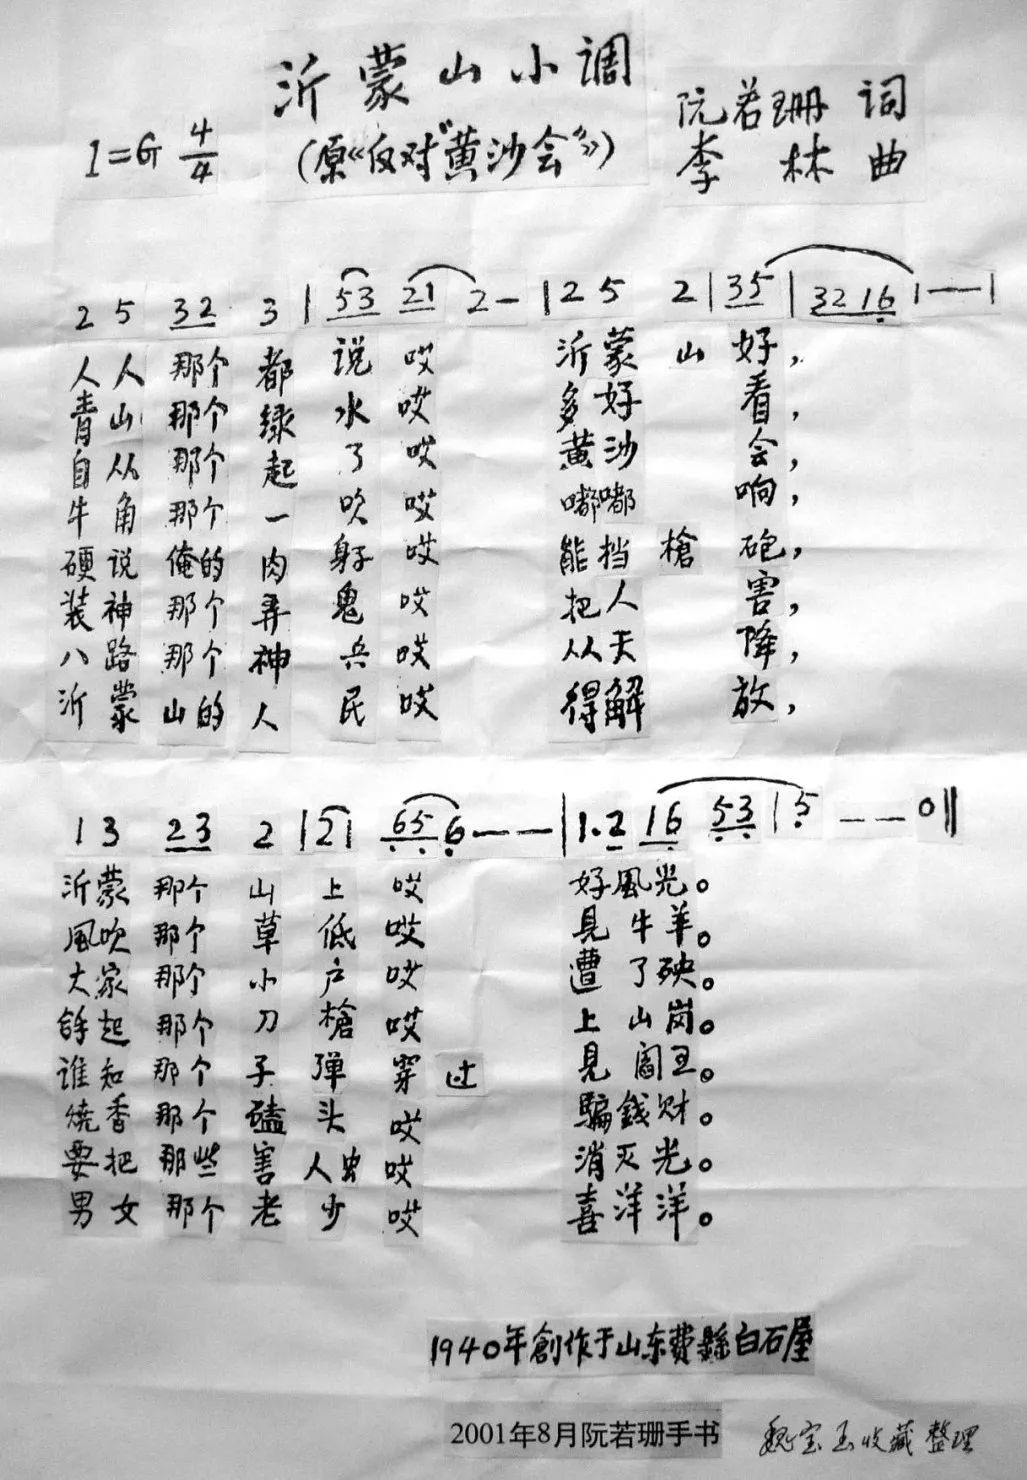 沂蒙山小调
(原《反对"黄沙会"》)
阮若珊 词
李林 曲
1=G 4/4
2 5 32 3 | 53 21 2 — | 2 5 2 | 35 | 32 16 | 1 — — |
人人那个都说哎 沂蒙山好，
青山那个绿水哎 多好看，
自从那个起了哎 黄沙会，
牛角那个一吹哎 嘟嘟响，
硬说俺的肉身子哎 能挡槍砲，
装神那个弄鬼哎 把人害，
八路那个神兵哎 从天降，
沂蒙山的人民哎 得解放，
1 3 23 2 | 21 65 6 — — | 1. 2 16 53 | 5 — — 0 ‖
沂蒙那个山上哎 好風光。
風吹那个草低哎 見牛羊。
大家那个小户哎 遭了殃。
拿起那个刀槍哎 上山岗。
谁知那个子弹穿过 見阎王。
燒香那个磕头哎 騙錢财。
要把那些害人虫哎 消灭光。
男女那个老少哎 喜洋洋。
1940年創作于山东费縣白石屋
2001年8月阮若珊手书
魏宝玉收藏整理